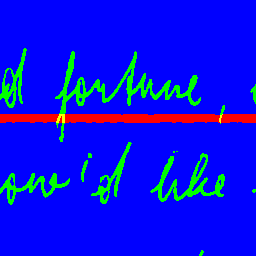 d fortune,
one'd like